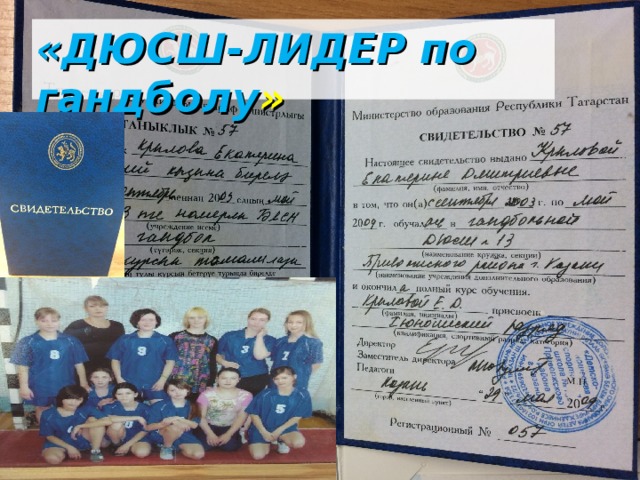 «ДЮСШ-ЛИДЕР по
гандболу»
ТАНЫКЛЫК № 57
Крылова Екатерина
кызына бирелә
(учреждение исеме)
гандбол
(түгәрәк, секция)
СВИДЕТЕЛЬСТВО
8
9
3
1
8
5
Министерство образования Республики Татарстан
СВИДЕТЕЛЬСТВО № 57
Настоящее свидетельство выдано Крыловой
Екатерине Дмитриевне
(фамилия, имя, отчество)
в том, что он(а) с сентября 2003 г. по май
2009 г. обучал в гандбольной
ДЮСШ № 13
(наименование кружка, секции)
Приволжского района г. Казани
(наименование учреждения дополнительного образования)
и окончил а полный курс обучения.
Крыловой Е. Д. присвоен
(фамилия, инициалы)
I юношеский разряд
(квалификация, спортивный разряд, категория)
Директор
Заместитель директора
Педагоги
М.П.
Казань "29" мая 2009
(город, населенный пункт)
Регистрационный № 057